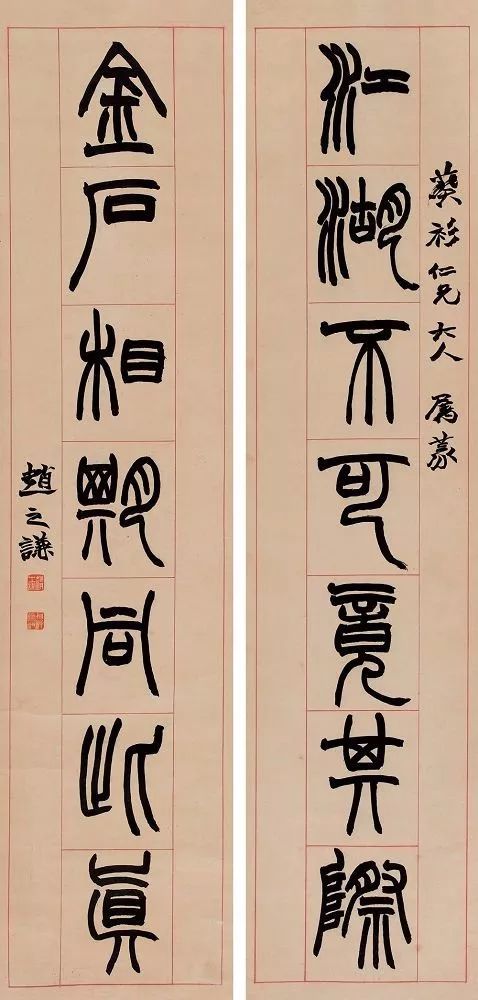 葵衫仁兄大人 属篆
江湖不可竟其際
金石相期同此眞
趙之謙